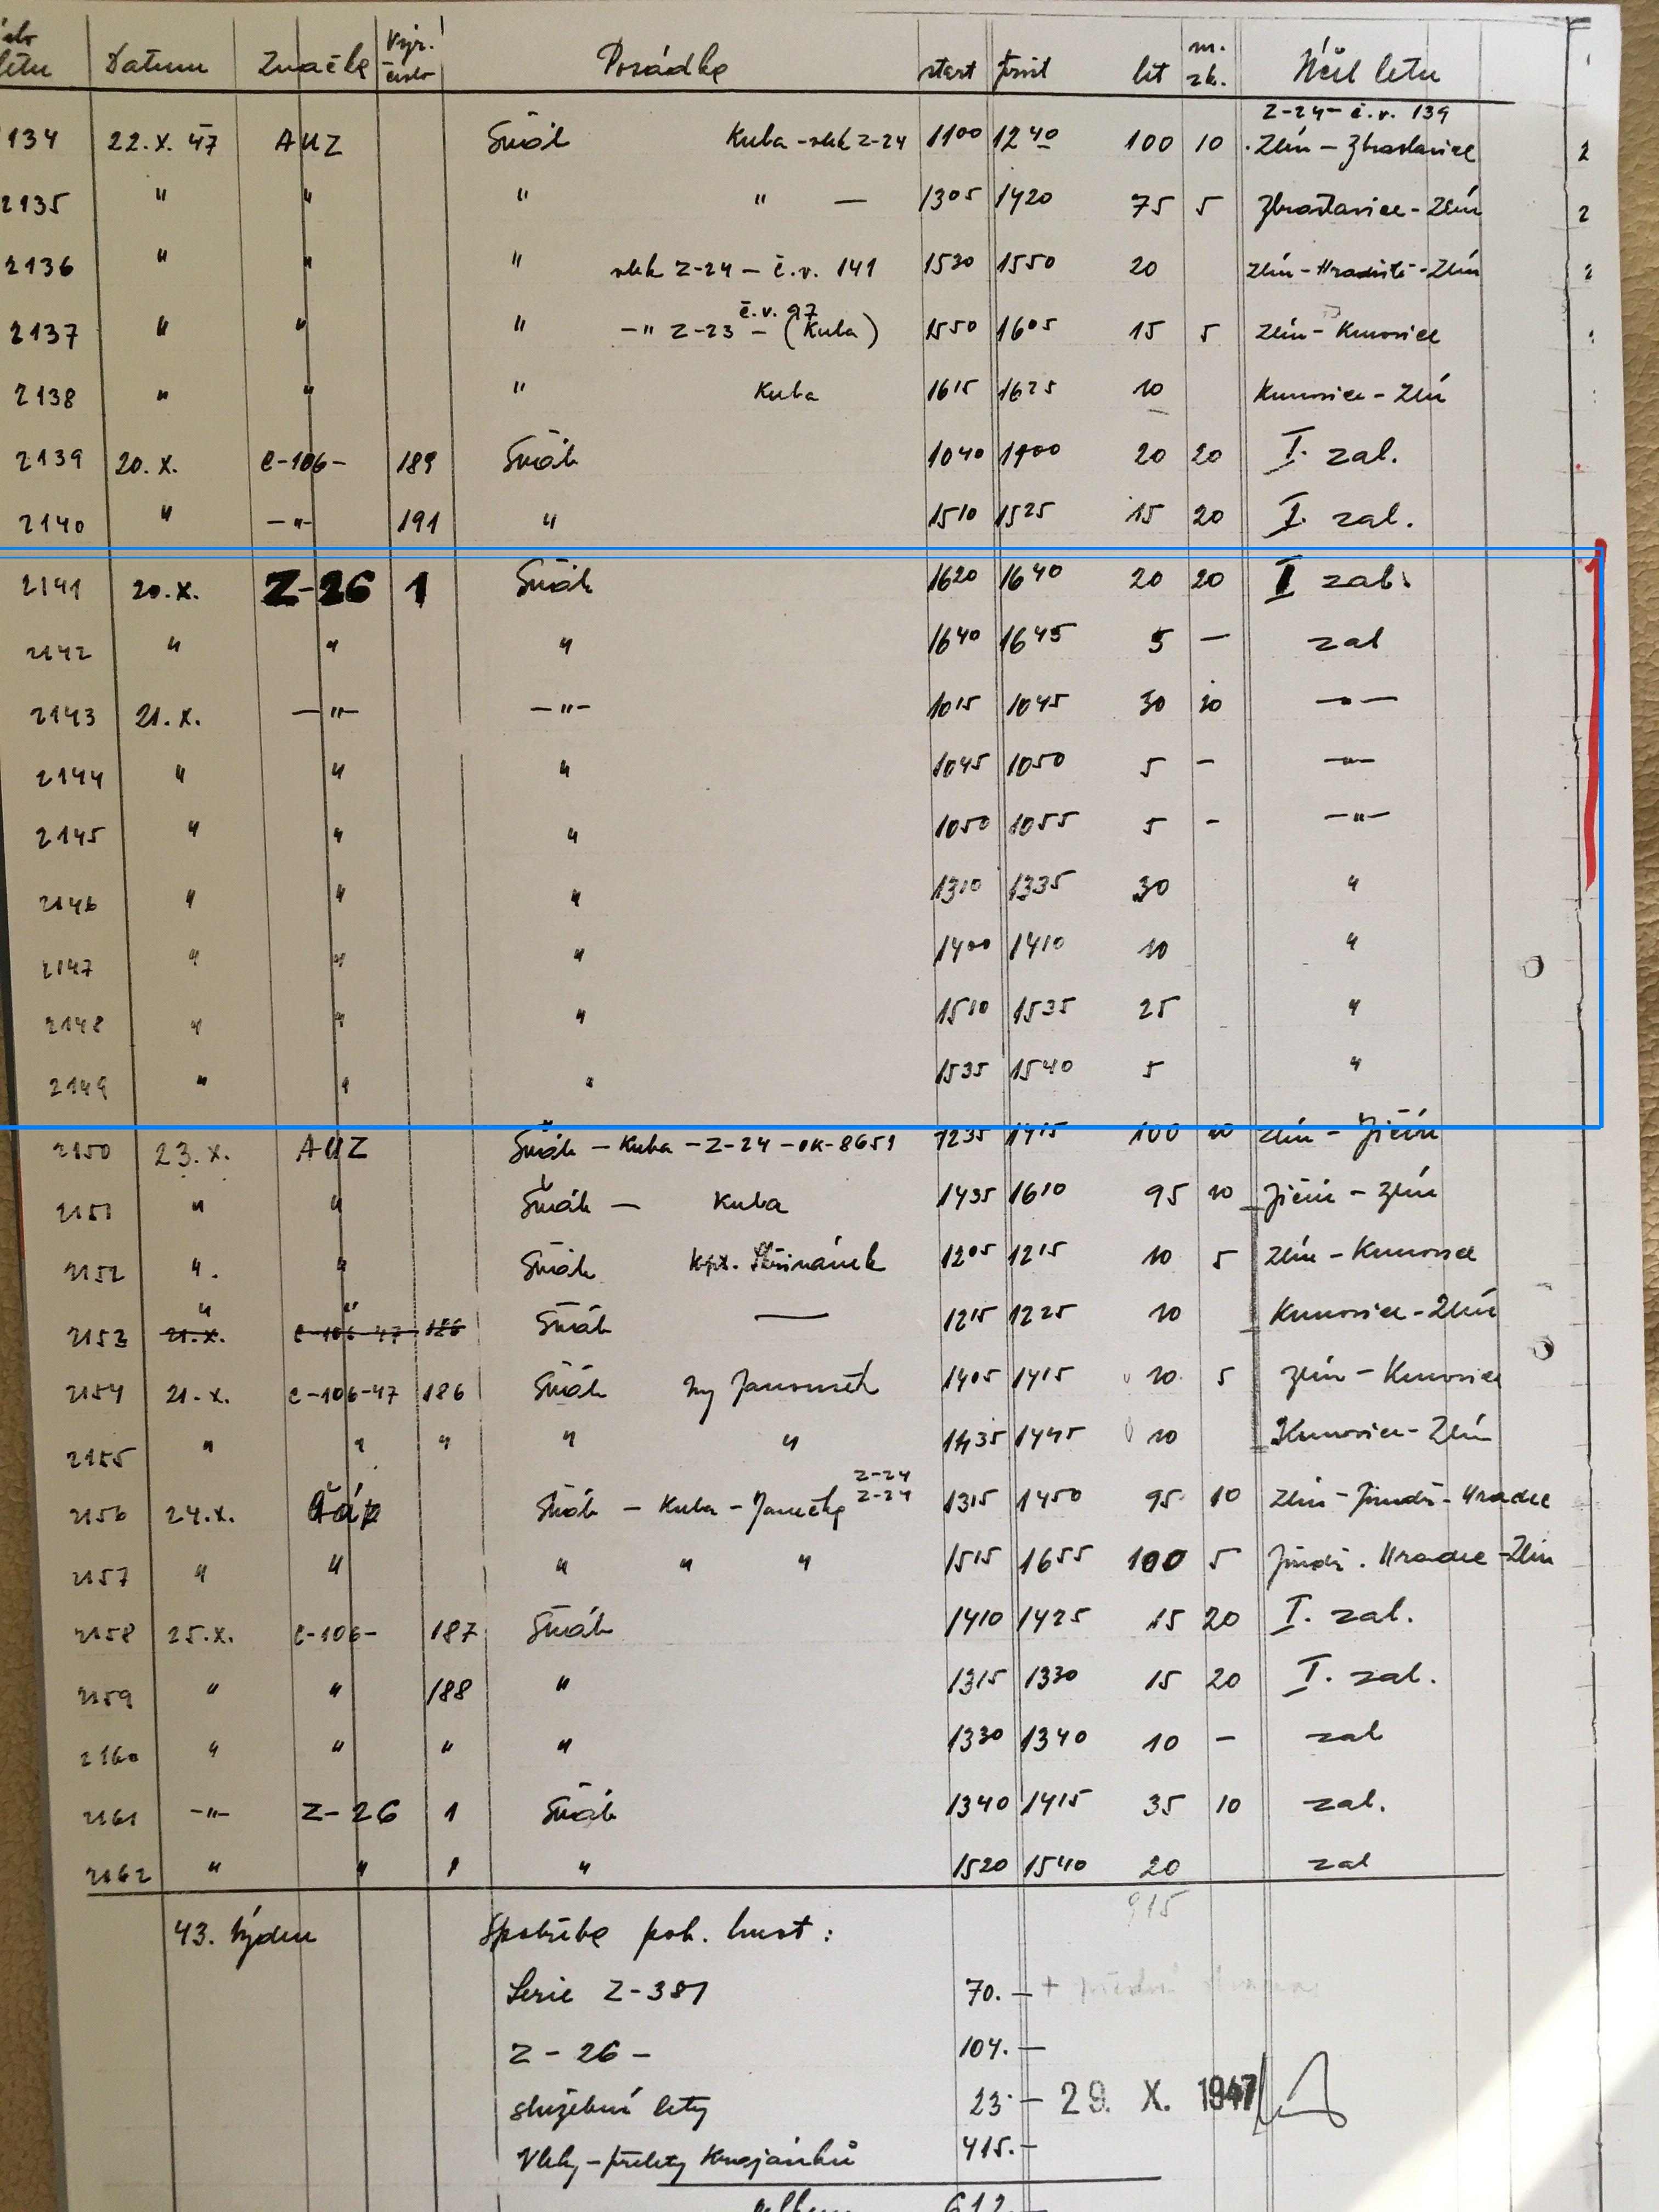 letu Datum Značka Výr. číslo Posádka start přist let m. zk. Účel letu
Z-24 – č.v. 139
134 22.X.47 AUZ Šváb Kuba - vlek Z-24 1100 1240 100 10 Zlín – Zbraslavice
2135 " " " " — 1305 1420 75 5 Zbraslavice - Zlín
2136 " " " vlek Z-24 – č.v. 141 1530 1550 20 Zlín - Hradiště - Zlín
č.v. 97
2137 " " " –"– Z-23 – (Kuba) 1550 1605 15 5 Zlín - Kunovice
2138 " " " Kuba 1615 1625 10 Kunovice - Zlín
2139 20.X. C-106- 189 Šváb 1040 1100 20 20 I. zal.
2140 " –"– 191 " 1510 1525 15 20 I. zal.
2141 20.X. Z-26 1 Šváb 1620 1640 20 20 I zal.
2142 " " " 1640 1645 5 – zal
2143 21.X. –"– –"– 1015 1045 30 20 –"–
2144 " " " 1045 1050 5 – –"–
2145 " " " 1050 1055 5 – –"–
2146 " " " 1310 1335 30 "
2147 " " " 1400 1410 10 "
2148 " " " 1510 1535 25 "
2149 " " " 1535 1540 5 "
2150 23.X. AUZ Šváb – Kuba – Z-24 – OK-8651 1235 1415 100 10 Zlín – Jičín
2151 " " Šváb – Kuba 1435 1610 95 10 Jičín – Zlín
2152 " " Šváb kpt. 1205 1215 10 5 Zlín – Kunovice
" "
2153 21.X. C-106-47 186 Šváb — 1215 1225 10 Kunovice - Zlín
2154 21.X. C-106-47 186 Šváb Ing 1405 1415 10 5 Zlín – Kunovice
2155 " " " " " 1435 1445 10 Kunovice - Zlín
Z-24
2156 24.X. Čáp Šváb – Kuba – Janečka Z-24 1315 1450 95 10 Zlín - Jindř. Hradec
2157 " " " " " 1515 1655 100 5 Jindř. Hradec - Zlín
2158 25.X. C-106- 187 Šváb 1410 1425 15 20 I. zal.
2159 " " 188 " 1315 1330 15 20 I. zal.
2160 " " " " 1330 1340 10 – zal
2161 –"– Z-26 1 Šváb 1340 1415 35 10 zal.
2162 " " 1 " 1520 1540 20 zal
915
43. týden Spotřeba poh. hmot:
Serie Z-381 70.–
Z-26 – 104.–
služební lety 23.– 29. X. 1947
Vleky – přelety Krajánků 415.–
celkem 612.–